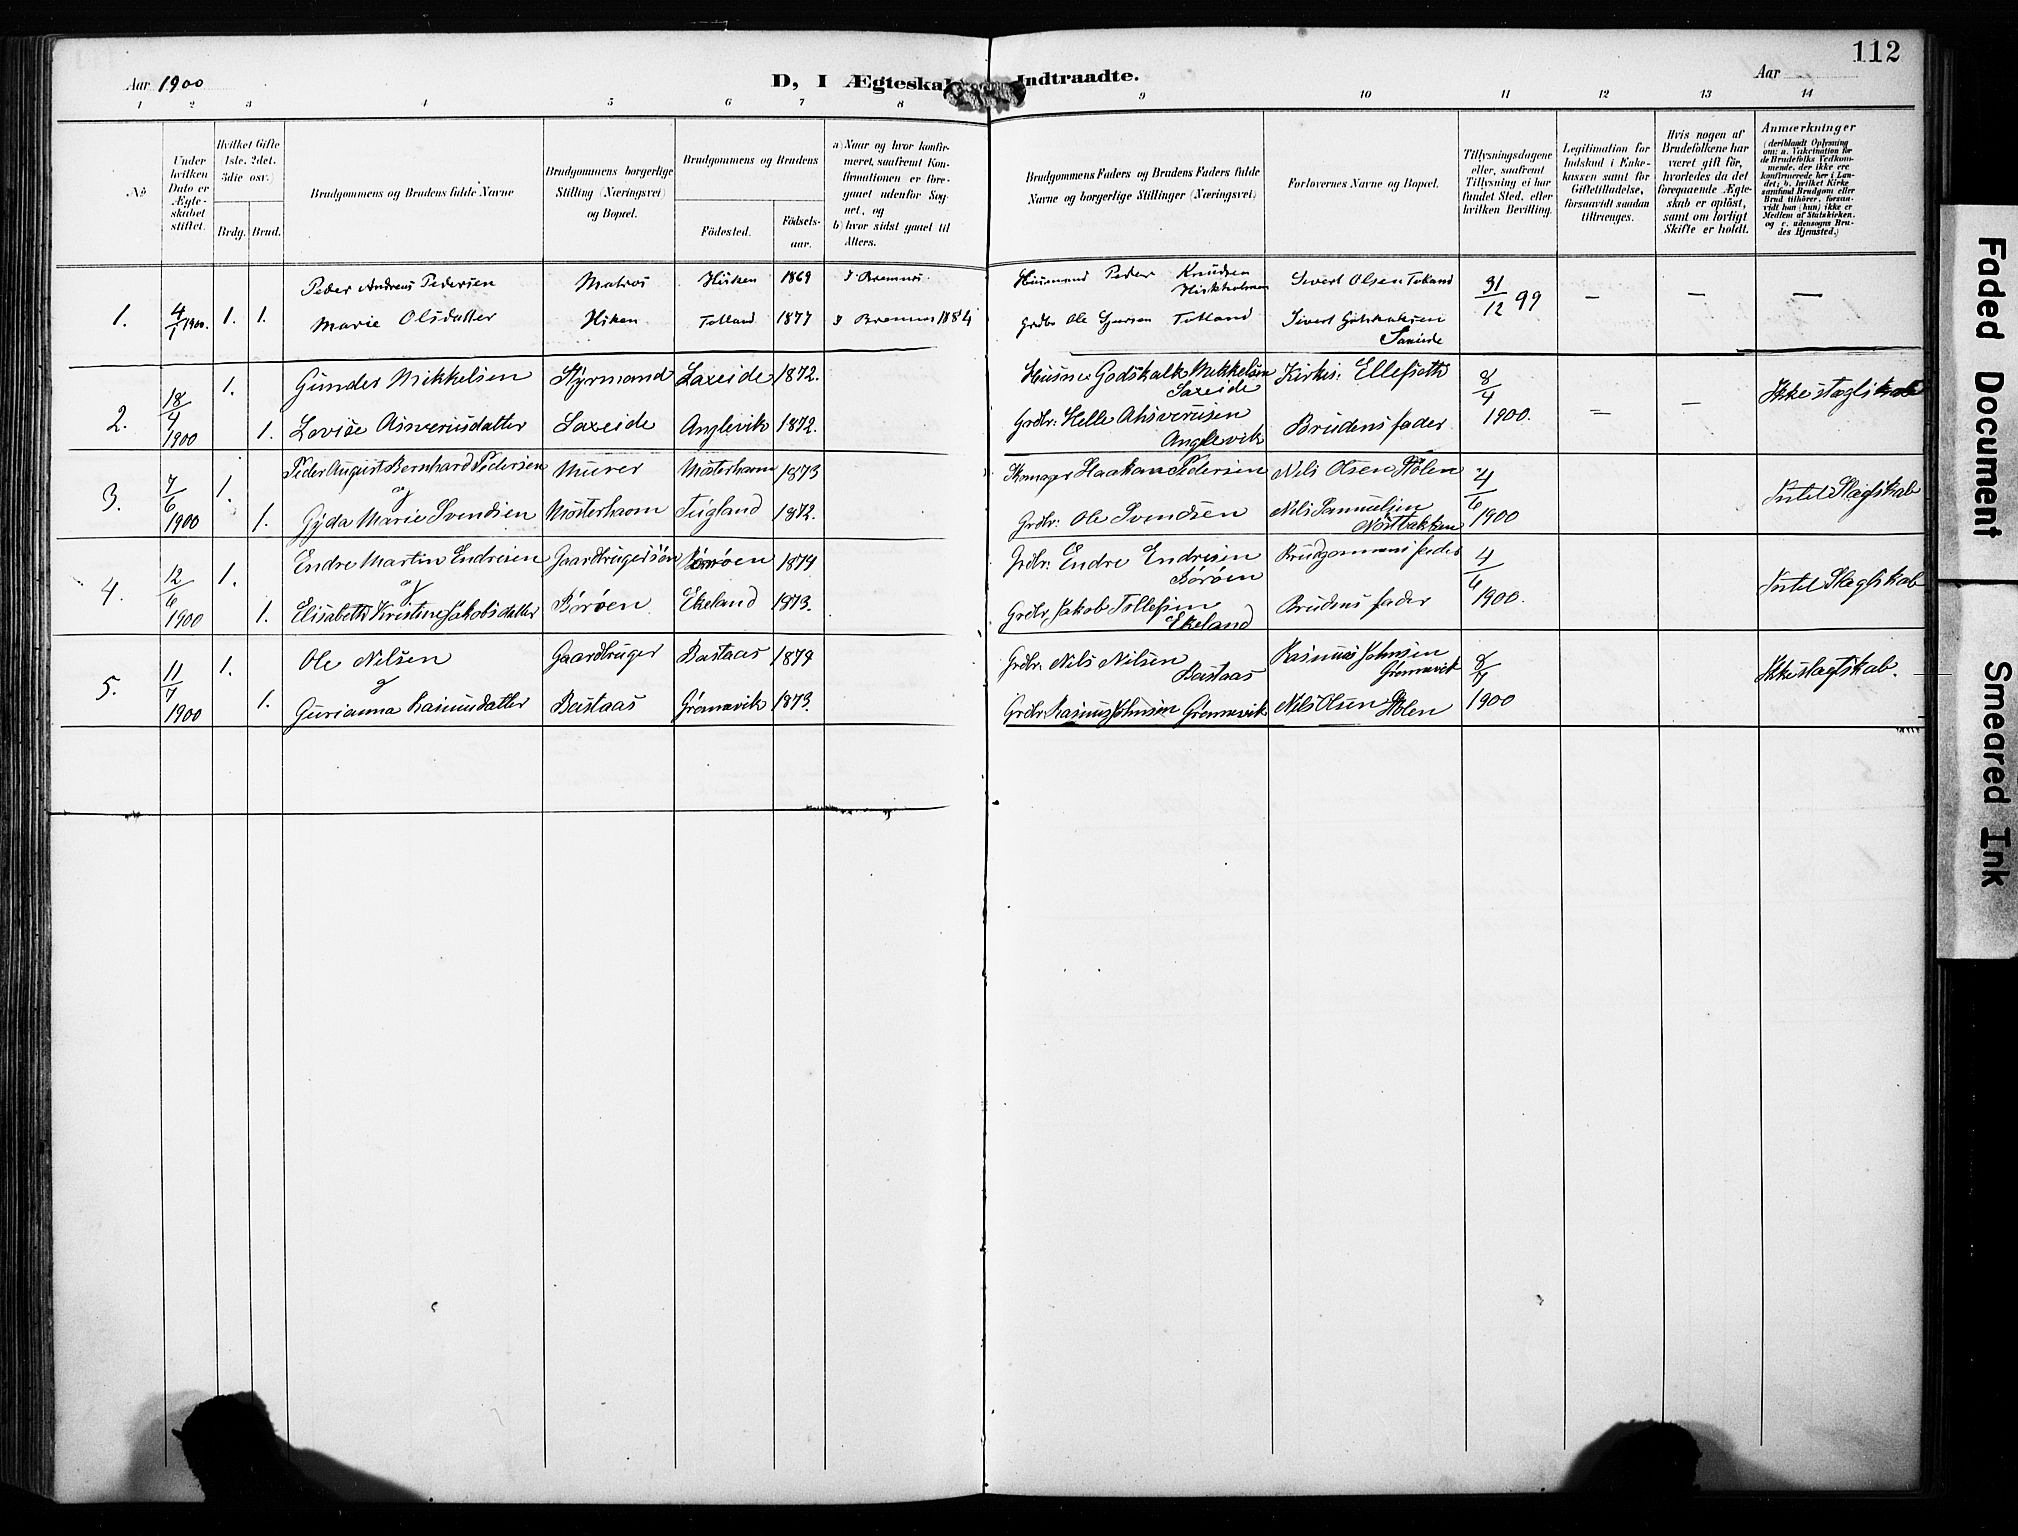 112
Aar 1900
D, I Ægteskab Indtraadte.
Aar
1 2 3 4 5 6 7 8 9 10 11 12 13 14
No
Under hvilken Dato er Ægteskabet stiftet.
Hvilket Gifte 1ste. 2det. 3die osv.)
Brdg. Brud.
Brudgommens og Brudens fulde Navne
Brudgommens borgerlige Stilling (Næringsvei) og Bopæl.
Brudgommens og Brudens
Födested.
Födsels-aar.
a) Naar og hvor konfirmeret, saafremt Konfirmationen er foregaaet udenfor Sognet, og
b) hvor sidst gaaet til Alters.
Brudgommens Faders og Brudens Faders fulde Navne og borgerlige Stillinger (Næringsvei)
Forlovernes Navne og Bopæl.
Tillysningsdagene eller, saafremt Tillysning ei har fundet Sted, efter hvilken Bevilling.
Legitimation for Indskud i Enkekassen samt for Giftetilladelse, forsaavidt saadan tiltrænges.
Hvis nogen af Brudefolkene har været gift för, hvorledes da det foregaaende Ægteskab er oplöst, samt om lovligt Skifte er holdt.
Anmærkninger
(deriblandt Oplysning om: a. Vakcination for de Brudefolks Vedkommende, der ikke ere konfirmerede her i Landet; b. hvilket Kirkesamfund Brudgom eller Brud tilhörer, forsaavidt han (hun) ikke er Medlem af Statskirken, og c. udensogns Brudes Hjemsted.)
1. 4/1 1900. 1. 1.
Peder Andreas Pedersen Matros Hisken 1869 I Bremnes.
Marie Olsdatter Hisken Totland 1877 I Bremnes 1884
Husmand Peder Knudsen Hiskholmen Sivert Olsen Totland 31/12 99 — — —
Grdbr Ole Totland Sivert
2. 18/4 1900 1.
Gunder Mikkelsen Styrmand Laxeide 1872.
1. Lovise Asverusdatter Laxeide Anglevik 1872.
Husm: Godskalk Mikkelsen Laxeide Kirkes: Ellefseth 8/4 1900. = — Ikke slægtskab
Grdbr: Helle Ahsverusen Anglevik Brudens fader
3. 7/6 1900 1.
Peder August Bernhard Pedersen Murer Mosterhavn 1873
og
1. Gyda Marie Svendsen Mosterhavn Tugland 1872.
Skomager Haakon Pedersen Nils Olsen Stolen 4/6 1900 Intet Slægtskab
Grdbr: Ole Svendsen Nils Samuelsen Nöstbakken
4. 12/6 1900 1.
Endre Martin Endresen Gaardbrugersøn Børøen 1879
og
1. Elisabeth Kristine Jakobsdatter Børøen Ekeland 1873.
Grdbr: Endre Endresen Børøen Brudgommens fader 4/6 1900. Intet Slægtskab
Grdbr, Jakob Tollefsen Ekeland Brudens fader
5. 11/7 1900 1.
Ole Nilsen Gaardbruger Bastaas 1879
og
1. Gurianna Rasmusdatter Bastaas Grønnevik 1873.
Grdbr: Nils Nilsen Bastaas Rasmus Johnsen Grønnevik 8/7 1900 Ikke slægtskab.
Grdbr Rasmus Johnsen Grønnevik Nils Olsen Stolen
Faded Document
Smeared Ink